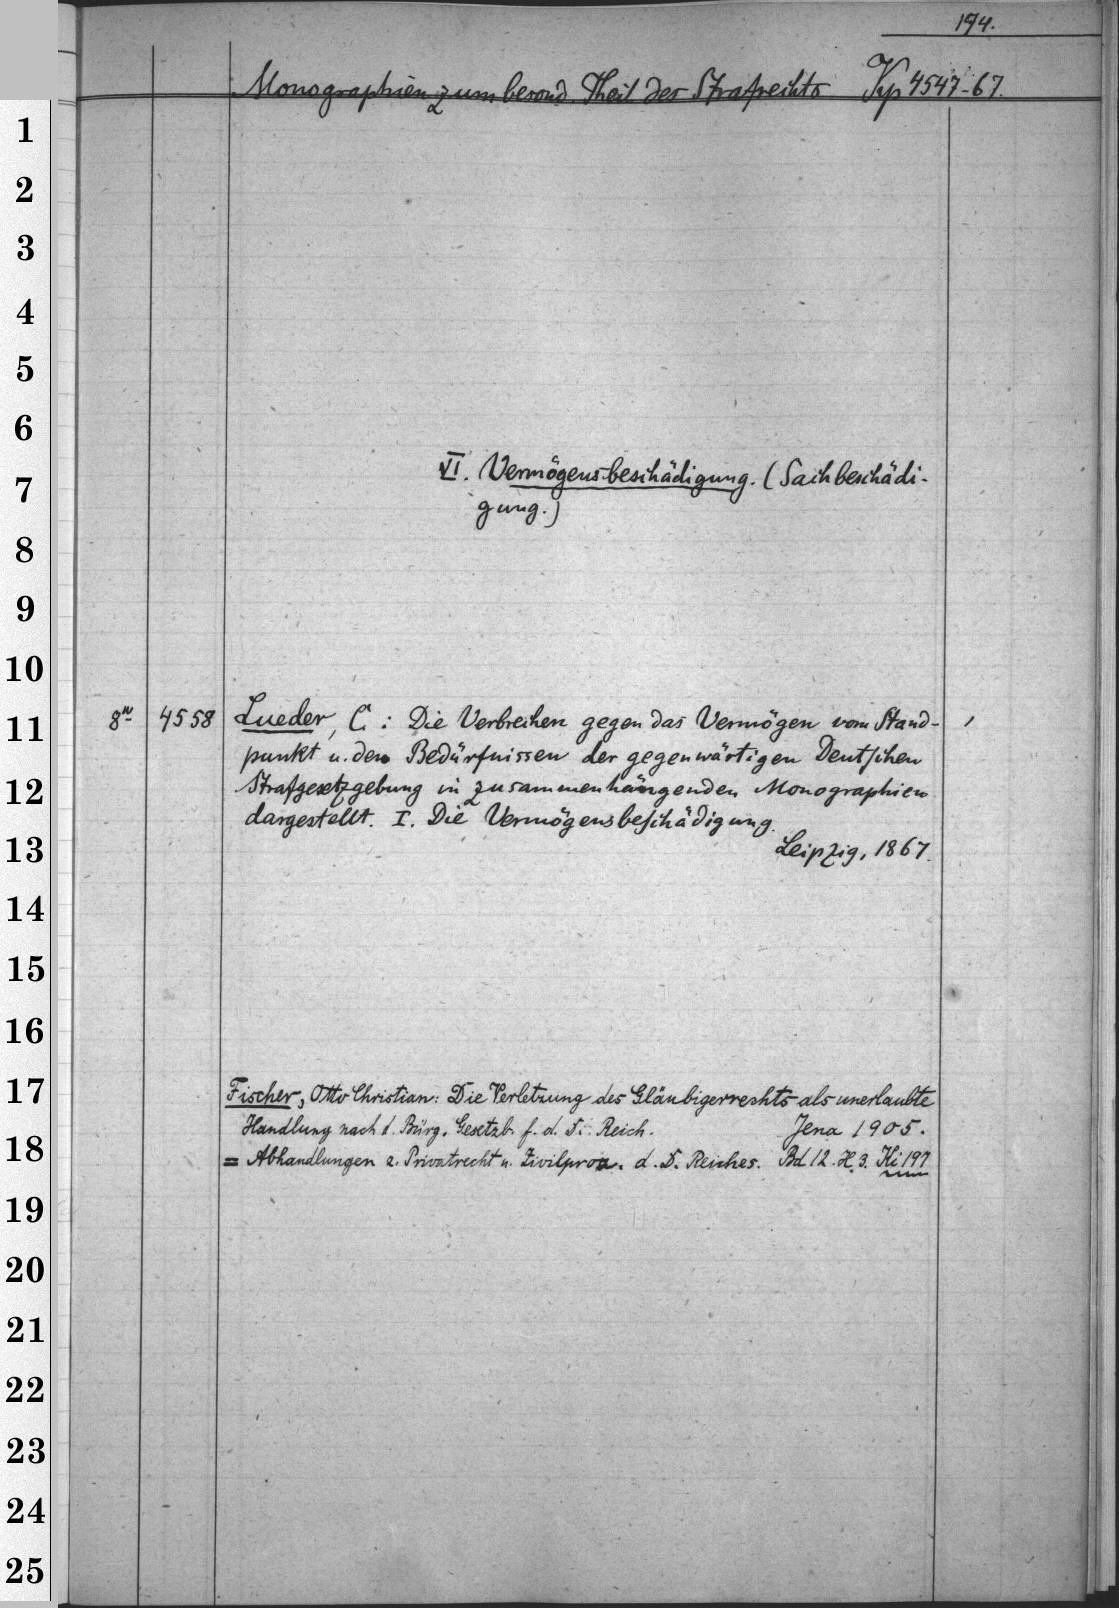 194.
Monographien zum besond. Theil des Strafrechts Kp 4547-67.
1
2
3
4
5
6
VI. Vermögensbeschädigung. (Sachbeschädi-
7
gung.)
8
9
10
8° 4558 Lueder, C.: Die Verbrechen gegen das Vermögen vom Stand-
11
punkt u. den Bedürfnissen der gegenwärtigen Deutschen
12
Strafgesetzgebung in zusammenhängenden Monographien
dargestellt. I. Die Vermögensbeschädigung.
13
Leipzig, 1867.
14
15
16
17
Fischer, Otto Christian: Die Verletzung des Gläubigerrechts als unerlaubte
Handlung nach d. Bürg. Gesetzb. f. d. D. Reich. Jena 1905.
18
= Abhandlungen z. Privatrecht u. Zivilproz. d. D. Reiches. Bd 12. H. 3. Ki 197
19
20
21
22
23
24
25